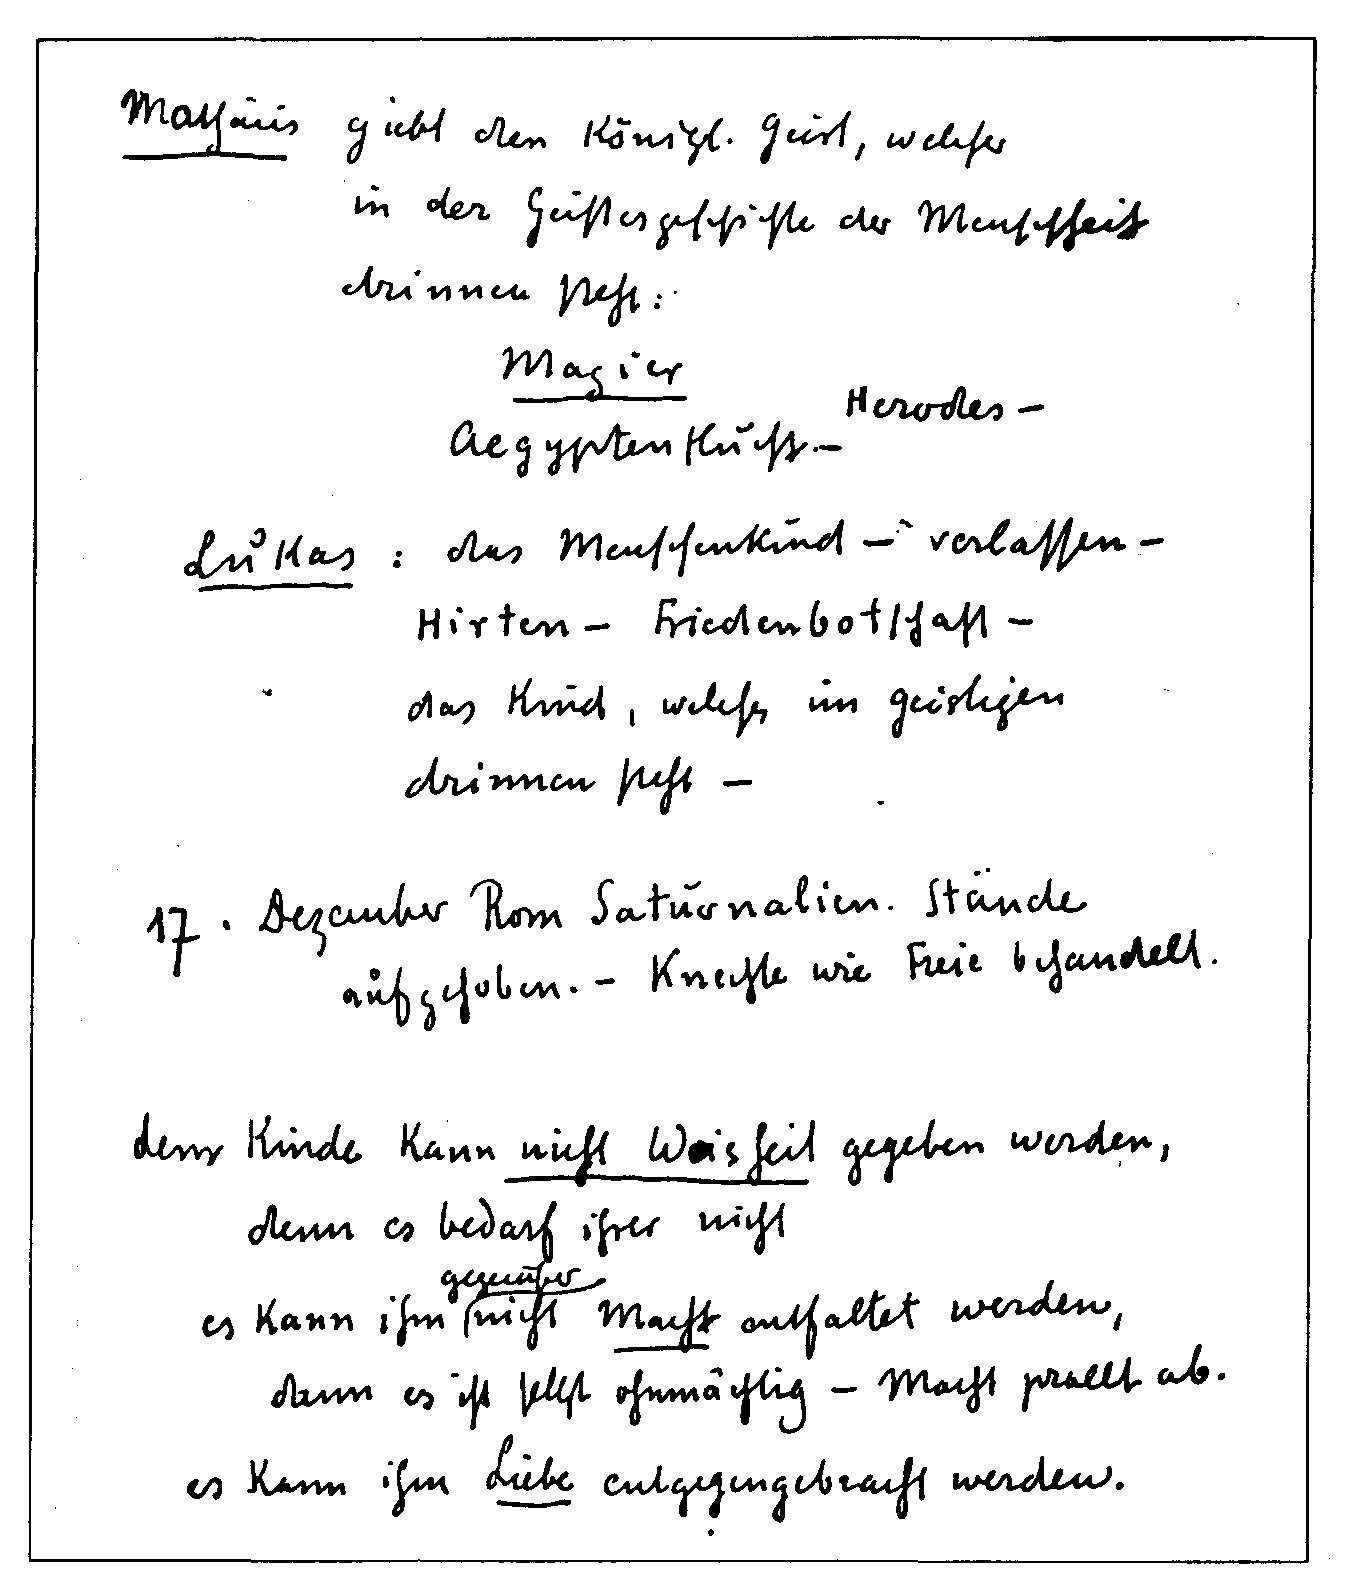 Mathäus giebt den Königl. Geist, welcher
in der Geistesgeschichte der Menschheit
drinnen steht:
Magier
Herodes –
Aegyptenflucht. –
Lukas : das Menschenkind – verlassen –
Hirten – Friedenbotschaft –
das Kind, welches im geistigen
drinnen steht –
17. Dezember Rom Saturnalien. Stände
aufgehoben. – Knechte wie Freie behandelt.
dem Kinde kann nicht Weisheit gegeben werden,
denn es bedarf ihrer nicht
gegenüber
es kann ihm nicht Macht entfaltet werden,
denn es ist selbst ohnmächtig – Macht prallt ab.
es kann ihm Liebe entgegengebracht werden.